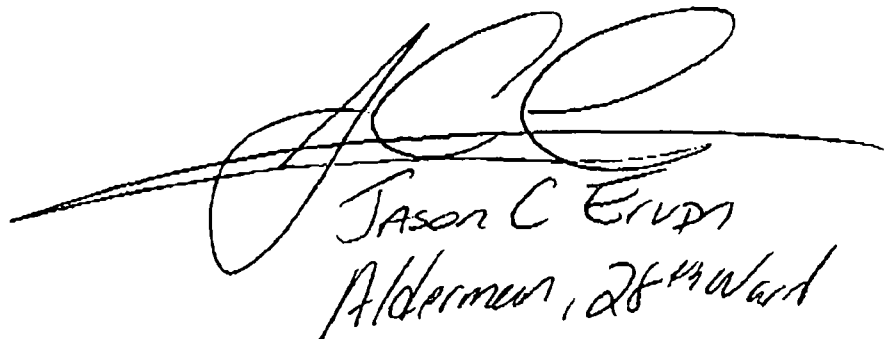 Jason C Ervin
Alderman, 28th Ward